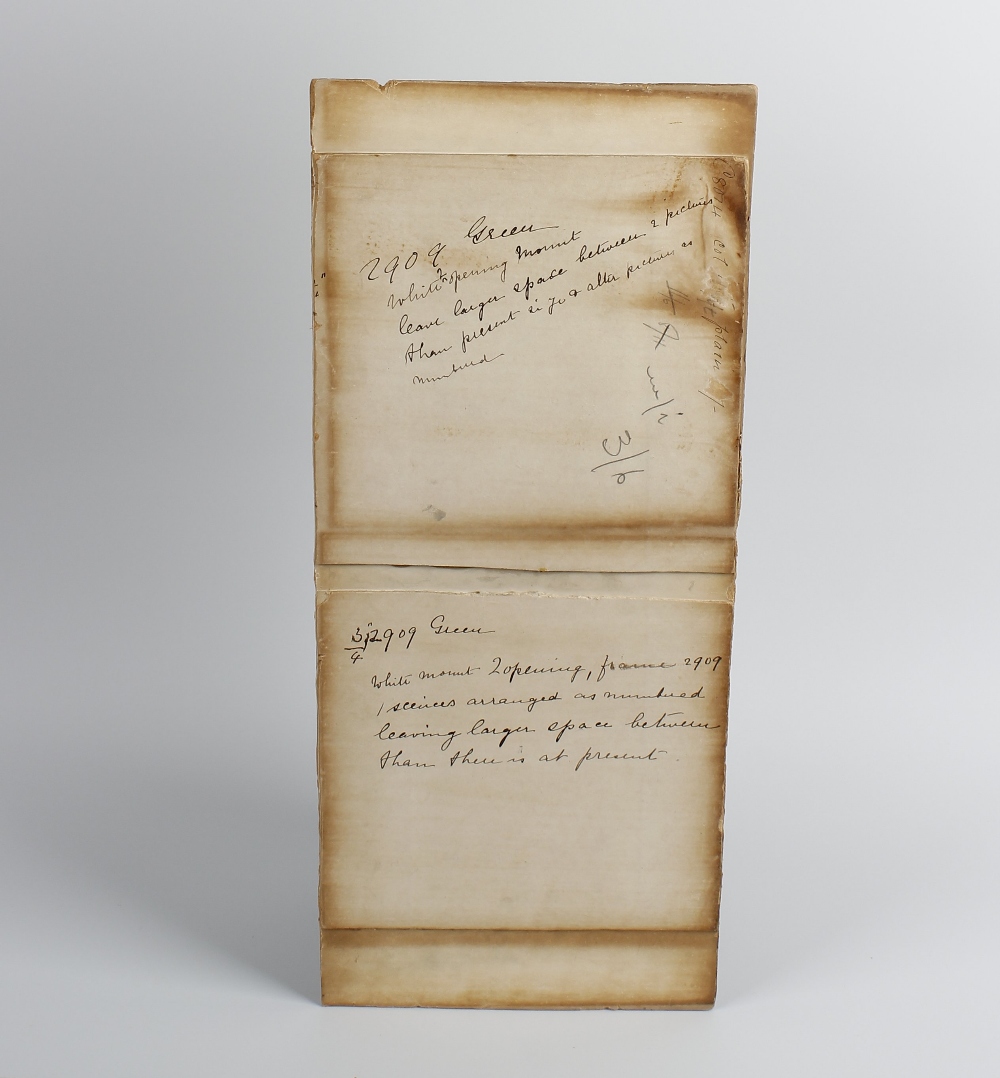 2909 Green
White 2 opening Mount
leave larger space between 2 pictures
than present & alter pictures as
numbered
3/6
3/4 2909 Green
White mount 2 opening, frame 2909
/ sceines arranged as numbered
leaving larger space between
than there is at present.